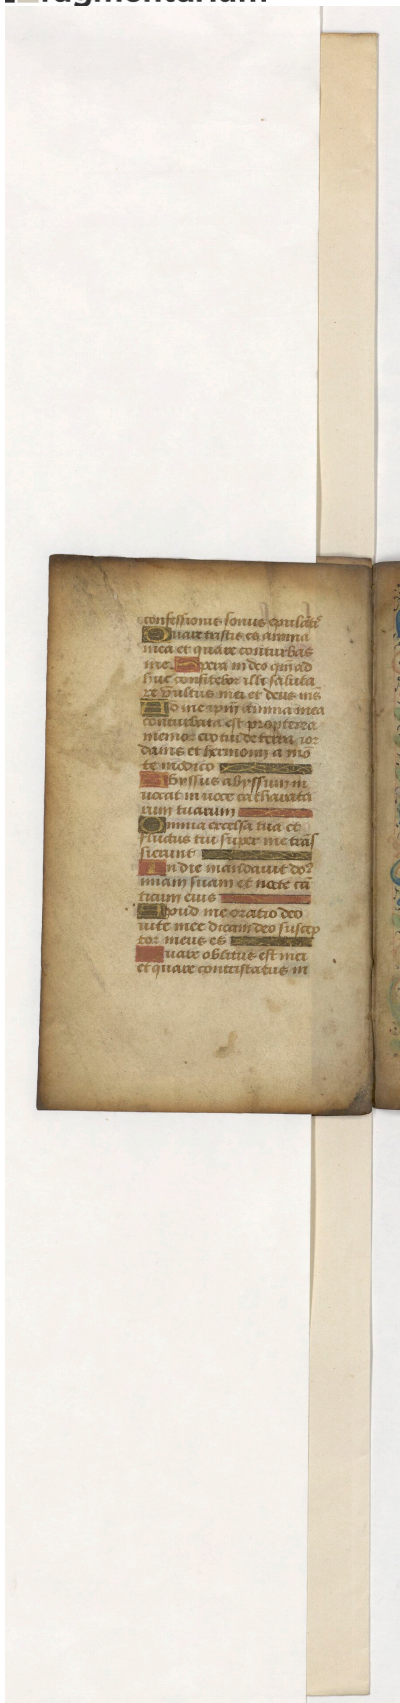 confessionis sonus epulātis
Quare tristis es anima
mea et quare conturbas
me. Spera in deo qm̄ ad
huc confitebor illi saluta
re vultus mei et deus ms
Ad me ip̄m anima mea
conturbata est propterea
memor ero tui de terra ior
danis et hermonij a mō
te modico
Abyssus abyssum in
uocat in uoce catharata
rum tuarum
Omnia excelsa tua et
fluctus tui super me trās
sierunt
In die mandauit do
miam suam et nocte cā
ticum eius
Apud me oratio deo
uite mee dicam deo suscep
tor meus es
Quare oblitus est mei
et quare contristatus in